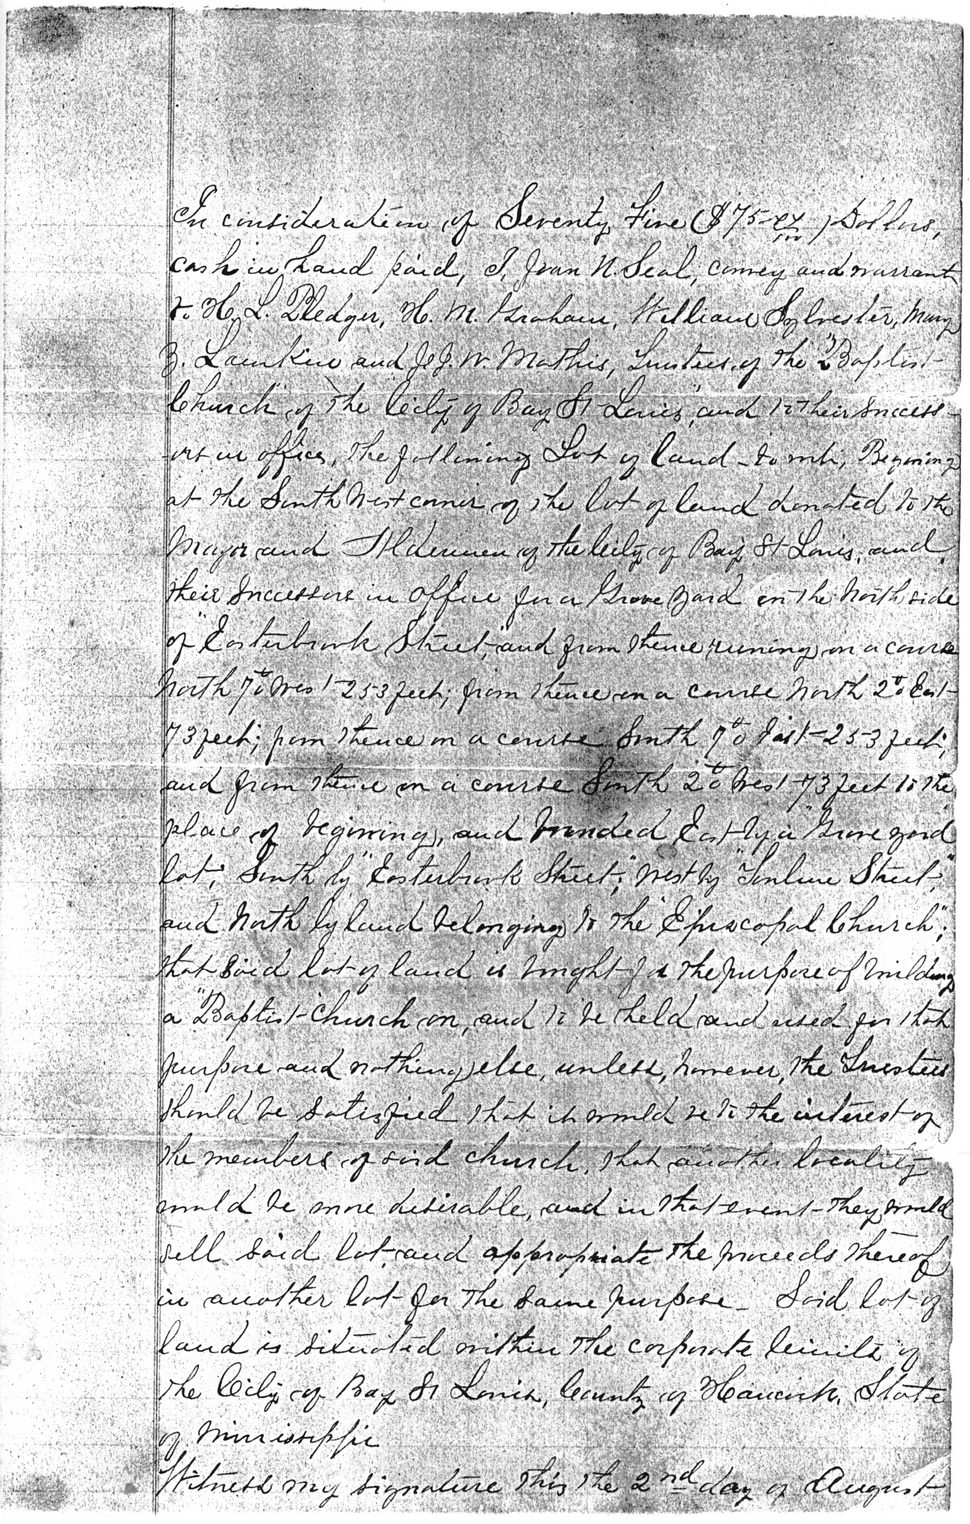 In consideration of Seventy Five ($75 ) Dollars,
cash in hand paid, I, Juan N. Seal, convey and warrant
to H. L. Pledger, H. M. Graham, William Sylvester, Mary
Z. Lamkin and J. W. Mathis, Trustees of the "Baptist
Church" of the City of Bay St Louis, and to their Success-
ors in office, the following Lot of land - to wit; Begining
at the South West corner of the lot of land donated to the
Mayor and Aldermen of the City of Bay St Louis, and
their Successors in office for a Grave Yard on the North side
of "Easterbrook Street," and from thence runing on a course
North 7° West 253 feet; from thence on a course North 2° East
73 feet; from thence on a course South 7° East 253 feet;
and from thence on a course South 2° West 73 feet to the
place of begining, and bounded East by a "Grave yard
lot," South by "Easterbrook Street"; West by Street,"
and North by land belonging to the "Episcopal Church";
that said lot of land is bought for the purpose of building
a "Baptist Church on, and to be held and used for that
purpose and nothing else, unless, however, the Trustees
should be satisfied that it would be to the interest of
the members of said church, that another locality
would be more desirable, and in that event they would
sell said lot, and appropriate the proceeds thereof
in another lot for the same purpose - Said lot of
land is situated within the corporate limits of
the City of Bay St Louis, County of Hancock, State
of Mississippi
Witness my signature this the 2nd day of August